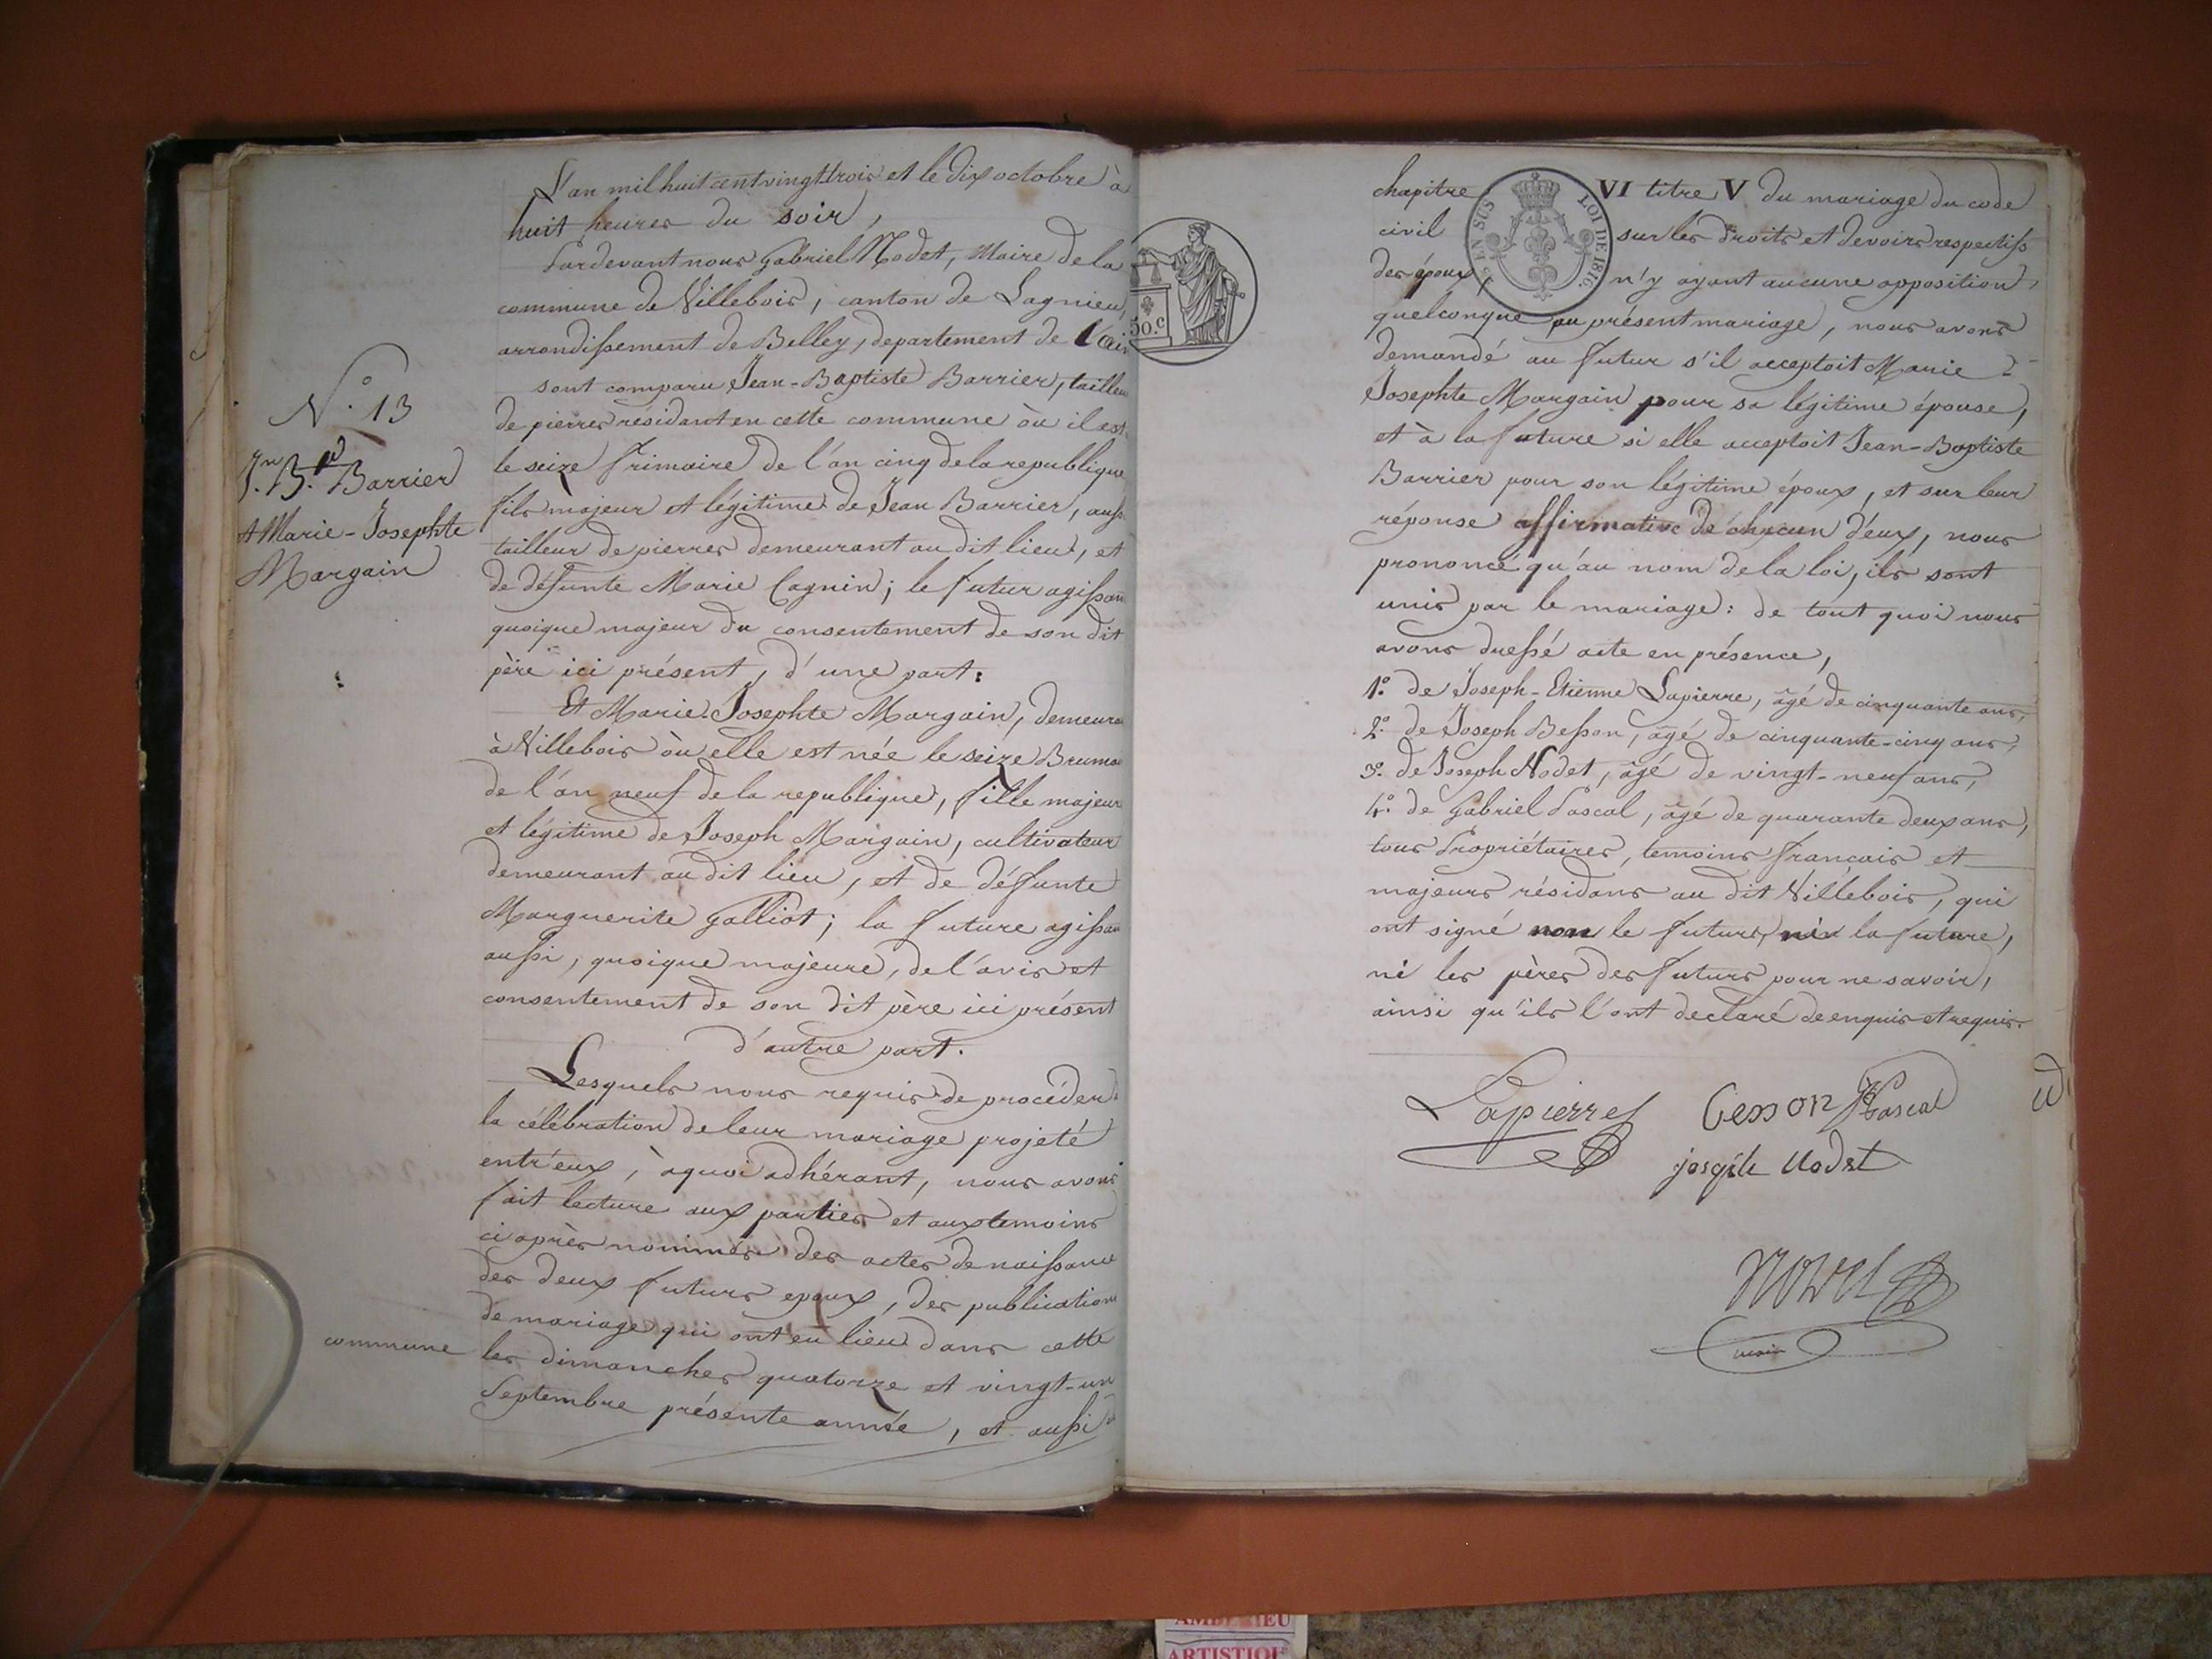 L'an mil huit cent vingt trois et le dix octobre à
huit heures du soir,
Pardevant nous Gabriel Nodet, Maire de la
commune de Villebois, canton de Lagnieu,
arrondissement de Belley, departement de l'ain
sont comparu Jean-Baptiste Barrier, tailleu
de pierres résidant en cette commune où il est
le seize frimaire de l'an cinq de la republique
fils majeur et légitime de Jean Barrier, auss
tailleur de pierres demeurant au dit lieu, et
de défunte Marie Cagnin; le futur agissan
quoique majeur du consentement de son dit
père ici présent, d'une part:
Et Marie-Josephte Margain, demeura
à Villebois où elle est née le seize Bruma
de l'an neuf de la republique, fille majeur
et légitime de Joseph Margain, cultivateur
demeurant au dit lieu, et de défunte
Marguerite Galliot; la future agissan
aussi, quoique majeure, de l'avis et
consentement de son dit père ici présent
d'autre part.
Lesquels nous requis de procéder
la célébration de leur mariage projeté
entr'eux, à quoi adhérant, nous avons
fait lecture aux parties et aux temoins
ci après nommés des actes de naissance
des deux futurs epoux, des publications
de mariage qui ont eu lieu dans cette
commune les dimanches quatorze et vingt-un
Septembre présente année, et aussi
N.° 13
J.n B.te Barrier
et Marie-Josephte
Margain
50.c
EN SUS
LOI DE 1816.
chapitre VI titre V du mariage du code
civil sur les droits et devoirs respectifs
des époux, n'y ayant aucune opposition
quelconque au présent mariage, nous avons
demandé au futur s'il acceptoit Marie
Josephte Margain pour sa légitime épouse,
et à la future si elle acceptoit Jean-Baptiste
Barrier pour son légitime époux, et sur leur
réponse affirmative de chacun d'eux, nous
prononcé qu'au nom de la loi, ils sont
unis par le mariage: de tout quoi nous
avons dressé acte en présence,
1.° de Joseph-Etienne Lapierre, âgé de cinquante ans,
2.° de Joseph Besson, âgé de cinquante-cinq ans,
3.° de Joseph Nodet, âgé de vingt-neuf ans,
4.° de Gabriel Pascal, âgé de quarante deux ans,
tous Propriétaires, temoins francais et
majeurs résidans au dit Villebois, qui
ont signé non le futur, ni la future,
ni les pères des futurs pour ne savoir,
ainsi qu'ils l'ont declaré de enquis et requis.
Lapierre Besson Pascal
joseph Nodet
Nodet
maire
ARTISTIQUE